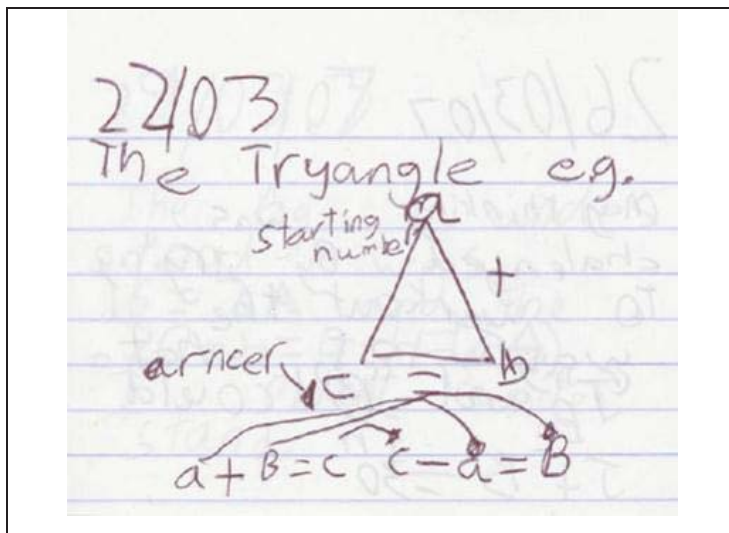 22/03
The Tryangle e.g.
a
starting
number
+
arncer
c = b
a + B = c c - a = B